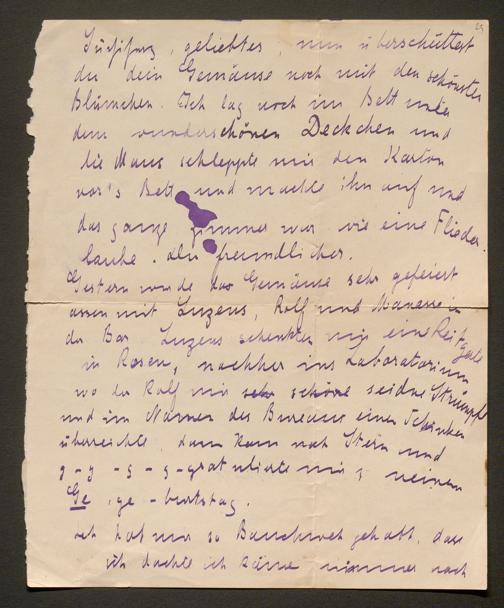 geliebtes, nun überschüttest
du dein Gemäuse noch mit den schönsten
Blümchen. Ich lag noch im Bett unter
dem wunderschönen Deckchen und
die Maus schleppte mir den Karton
vor's Bett und machte ihn auf und
das ganze Zimmer war wie eine Flieder-
laube. du freundlicher.
Gestern wurde das Gemäuse sehr gefeiert
assen mit Luzens, Rolf und Manasse in
der Bar. Luzens schenkten mir eine
in Rosen, nachher ins Laboratorium
wo der Rolf mir sehr schöne seidne Strümpfe
und im Namen des Bureaus einen Schinken
überreichte. dann kam noch Stern und
g-g-g-g-gratulierte mir z meinem
Ge.ge-burtstag.
ich hab nur so Bauchweh gehabt, dass
ich dachte ich käme nimmer nach